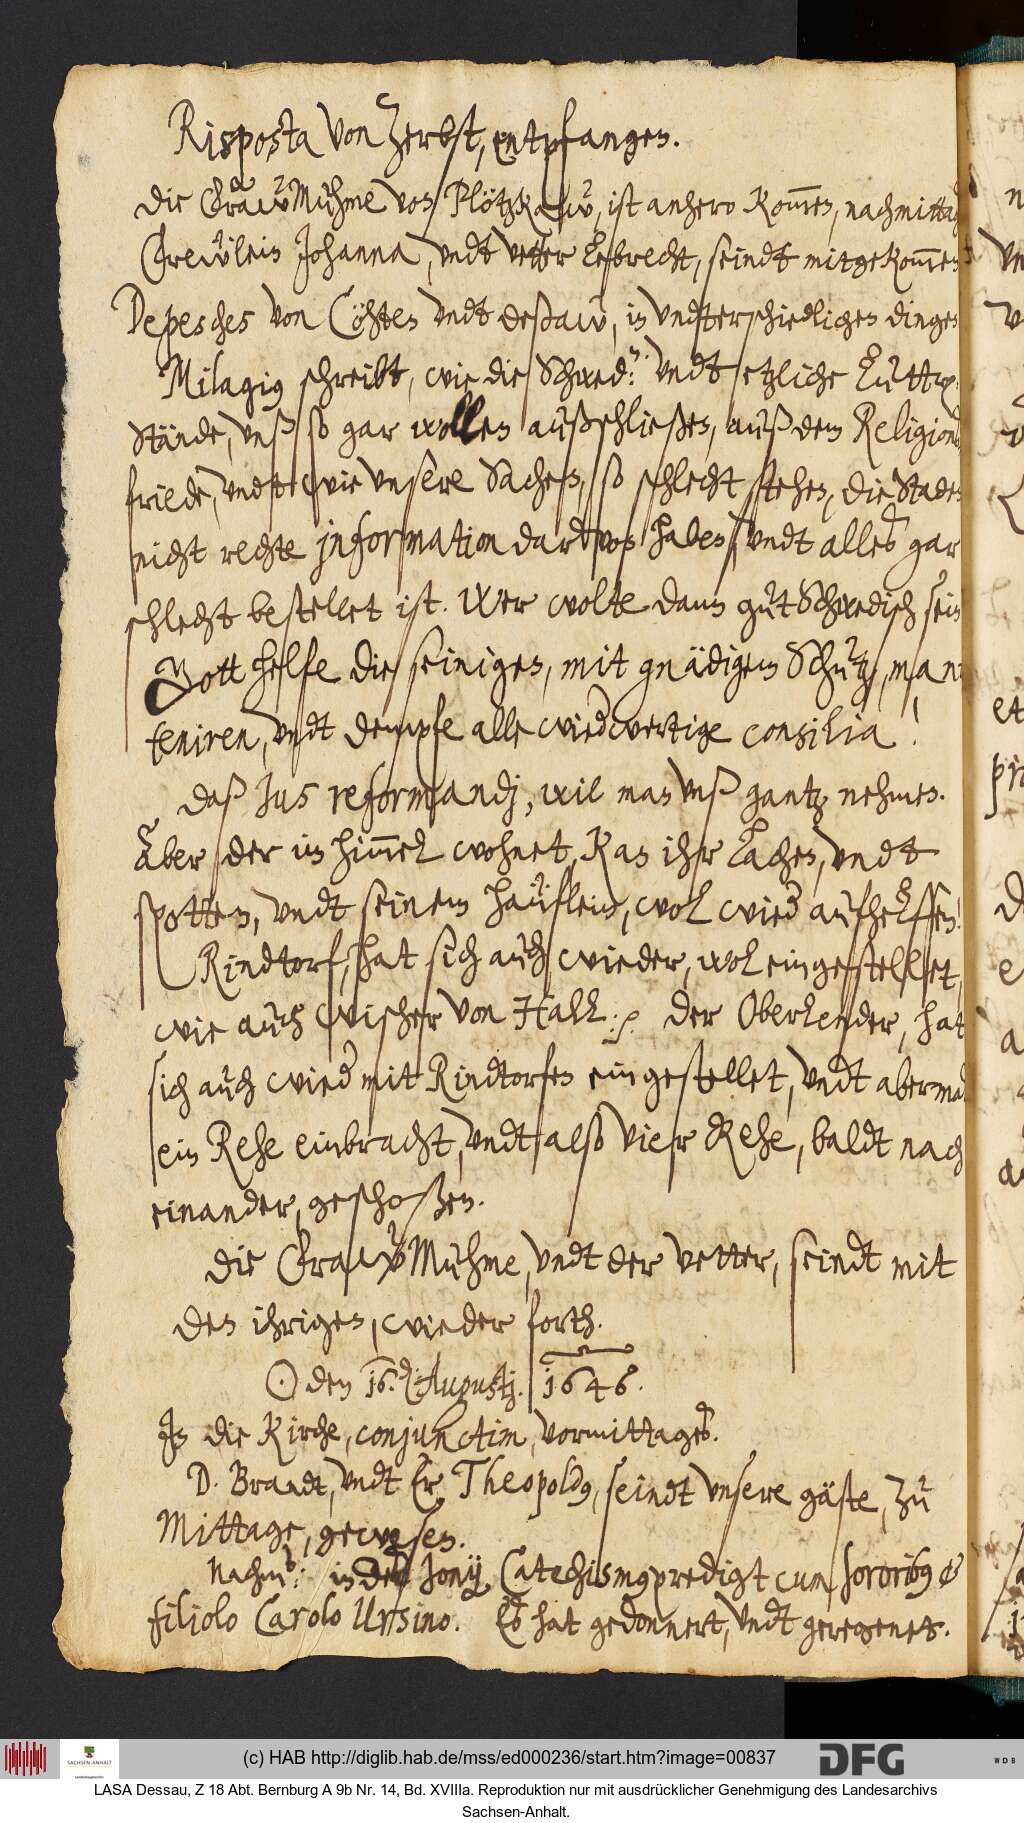 Risposta von Zerbst, entpfangen.
Die Fraw Muhme von Plötzkaw, ist anhero kom̅en, nachmittag
Frewlein Johanna, vndt vetter Lebrecht, seindt mitgekom̅en
Depeschen von Cöhten vndt deßaw, in vndterschiedlichen dingen
Milagius schreibt, wie die Schwed: vndt etzliche Lutt
Stände, vnß so gar wollen außschließen, auß dem Religions
friede, vndt wie vnsere Sachen, so schlecht stehen, die Staden
nicht rechte information darvon haben, vndt alles gar
schlecht bestellet ist. Wer wolte dann gut Schwedisch sein
Gott helfe die seinigen, mit gnädigem Schutz, man¬
teniren, vndt dempfe alle wiedwertige consilia!
Daß Jus reformandj, wil man vnß gantz nehmen.
Aber der im him̅el wohnet, kan ihr lachen, vndt
spotten, vndt seinem häuflein, wol wied aufhelffen!
Rindtorf, hat sich auch wieder, wol eingestellet,
wie auch Wischer von Hall: p der Oberlender, hat
sich auch wied mit Rindtorfen eingestellet, vndt abermal
ein Rehe einbracht, vndt also vier Rehe, baldt nach
einander, geschoßen.
Die Fraw Muhme, vndt der vetter, seindt mit
den ihrigen, wieder forth.
☉ den 16. Augustj. 1646.
In die Kirche, conjunctim, vormittages.
D. Brandt, vndt Er Theopoldus, seindt vnsere gäste, zu
Mittage, gewesen.
Nachm: in des Jonij Catechismuspredigt cum sororibus &
filiolo Carolo Ursino. Es hat gedonnert, vndt geregenet.
(c) HAB http://diglib.hab.de/mss/ed000236/start.htm?image=00837
SACHSEN-ANHALT
DFG
WDB
LASA Dessau, Z 18 Abt. Bernburg A 9b Nr. 14, Bd. XVIIIa. Reproduktion nur mit ausdrücklicher Genehmigung des Landesarchivs
Sachsen-Anhalt.